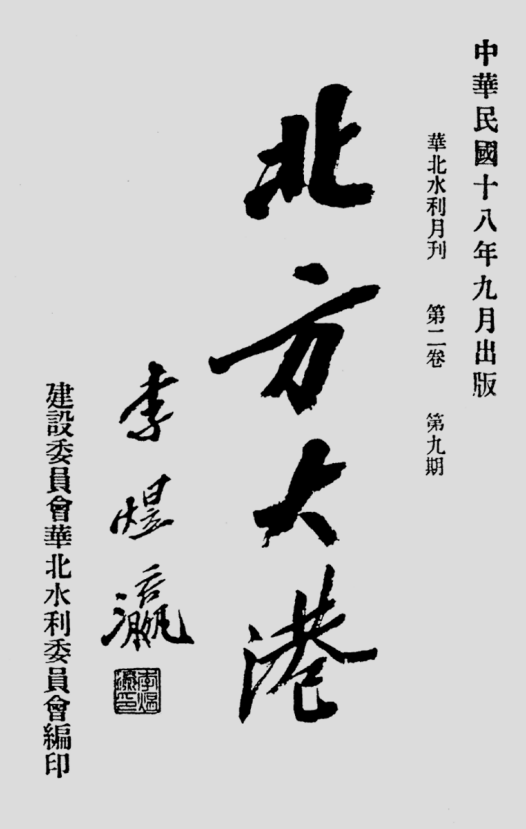 中華民國十八年九月出版
華北水利月刊 第二卷 第九期
北方大港
李煜瀛
建設委員會華北水利委員會編印